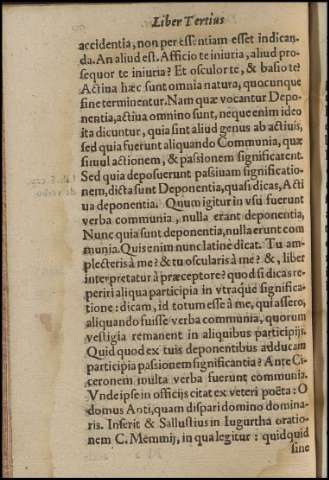 Liber Tertius
accidentia, non per essentiam esset indican-
da. An aliud est. Afficio te iniuria, aliud pro-
sequor te iniuria? Et osculor te, & basio te?
Actiua hæc sunt omnia natura, quocunque
fine terminentur. Nam quæ vocantur Depo-
nentia, actiua omnino sunt, neque enim ideo
ita dicuntur, quia sint aliud genus ab actiuis,
sed quia fuerunt aliquando Communia, quæ
simul actionem, & passionem significarent.
Sed quia deposuerunt passiuam significatio-
nem, dicta sunt Deponentia, quasi dicas, Acti
ua deponentia. Quum igitur in vsu fuerunt
verba communia, nulla erant deponentia,
Nunc quia sunt deponentia, nulla erunt com
munia. Quis enim nunc latinè dicat. Tu am-
plecteris à me? & tu oscularis à me? &, liber
interpretatur à præceptore? quod si dicas re-
periri aliqua participia in vtraque significa-
tione: dicam, id totum esse à me, qui assero,
aliquando fuisse verba communia, quorum
vestigia remanent in aliquibus participijs.
Quid quod ex tuis deponentibus adducam
participia passionem significantia? Ante Ci-
ceronem multa verba fuerunt communia.
Vnde ipse in officijs citat ex veteri poëta: O
domus Anti, quam dispari domino domina-
ris. Inserit & Sallustius in Iugurtha oratio-
nem C. Memmij, in qua legitur: quidquid
sine